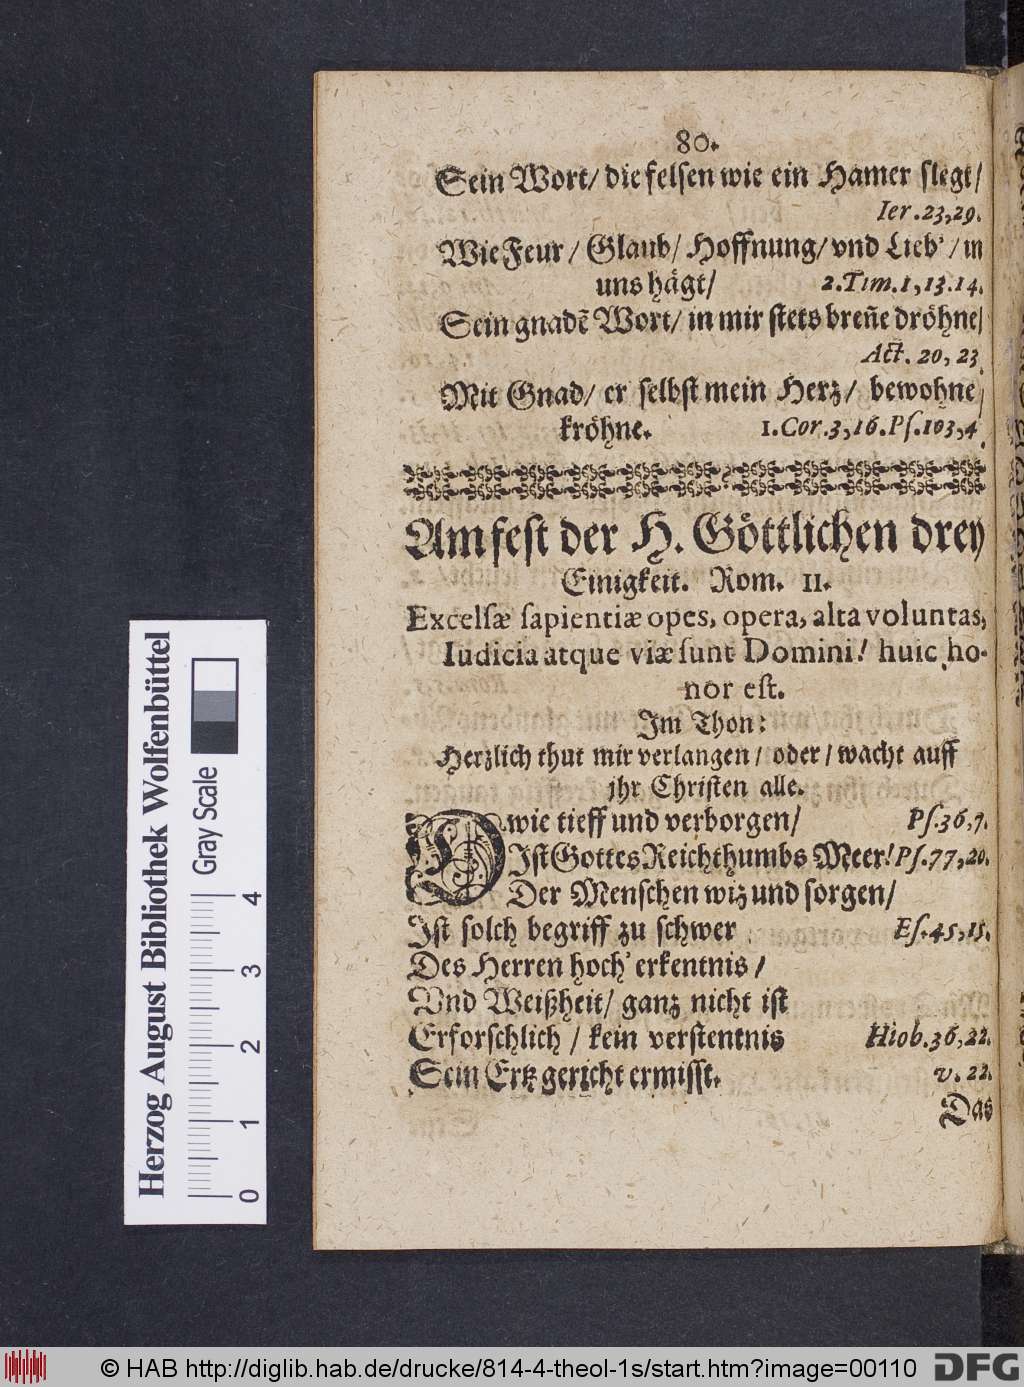 80.
Sein Wort/ die felsen wie ein Hamer slegt/
Ier. 23, 29.
Wie Feur / Glaub/ Hoffnung/ vnd Lieb' / in
uns hägt/ 2. Tim. 1, 13. 14.
Sein gnadẽ Wort/ in mir stets breñe dröhne/
Act. 20, 23
Mit Gnad/ er selbst mein Herz/ bewohne
kröhne. 1. Cor. 3, 16. Ps. 103, 4.
Am fest der H. Göttlichen drey
Einigkeit. Rom. 11.
Excelsæ sapientiæ opes, opera, alta voluntas,
Iudicia atque viæ sunt Domini! huic ho-
nor est.
Im Thon:
Herzlich thut mir verlangen / oder / wacht auff
ihr Christen alle.
O wie tieff und verborgen/ Ps. 36, 7.
Ist Gottes Reichthumbs Meer! Ps. 77, 20.
Der Menschen wiz und sorgen/
Ist solch begriff zu schwer Es. 45, 15.
Des Herren hoch' erkentnis /
Vnd Weißheit/ ganz nicht ist
Erforschlich / kein verstentnis Hiob. 36, 22.
Sein Ertz gericht ermisst. v. 22.
Das
Herzog August Bibliothek Wolfenbüttel
Gray Scale
0 1 2 3 4
© HAB http://diglib.hab.de/drucke/814-4-theol-1s/start.htm?image=00110
DFG